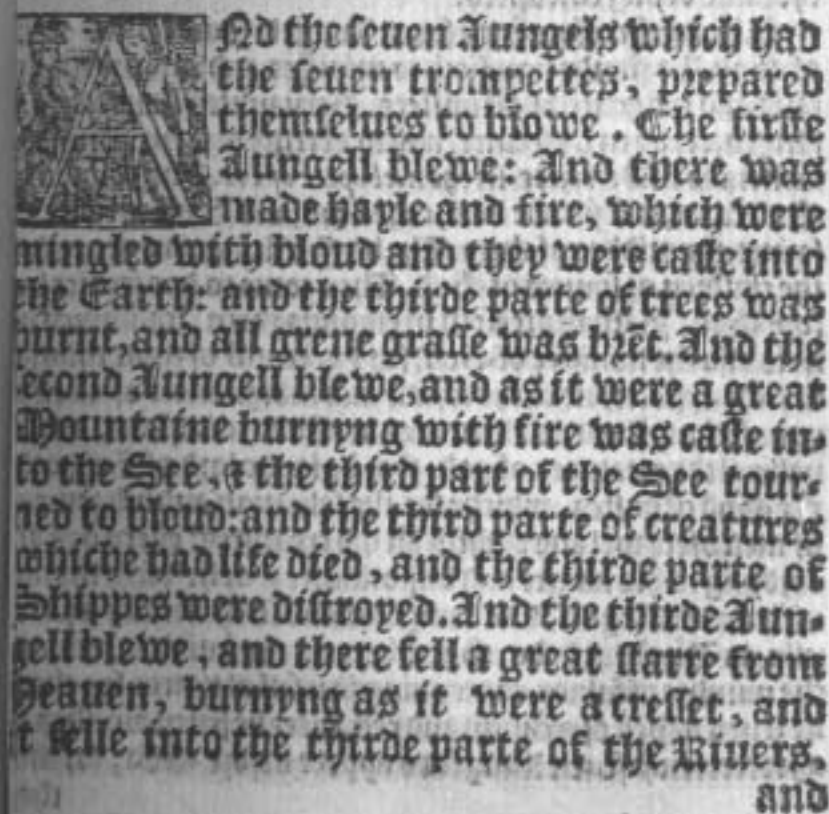 ANd the seuen Aungels which had
the seuen trompettes, prepared
themselues to blowe. The firste
Aungell blewe: And there was
made hayle and fire, which were
mingled with bloud and they were caste into
the Earth: and the thirde parte of trees was
burnt, and all grene grasse was brēt. And the
second Aungell blewe, and as it were a great
Mountaine burnyng with fire was caste in-
to the See, & the third part of the See tour-
ned to bloud: and the third parte of creatures
whiche had life died, and the thirde parte of
Shippes were distroyed. And the thirde Aun-
gell blewe, and there fell a great starre from
Heauen, burnyng as it were a cresset, and
it felle into the thirde parte of the Riuers,
and